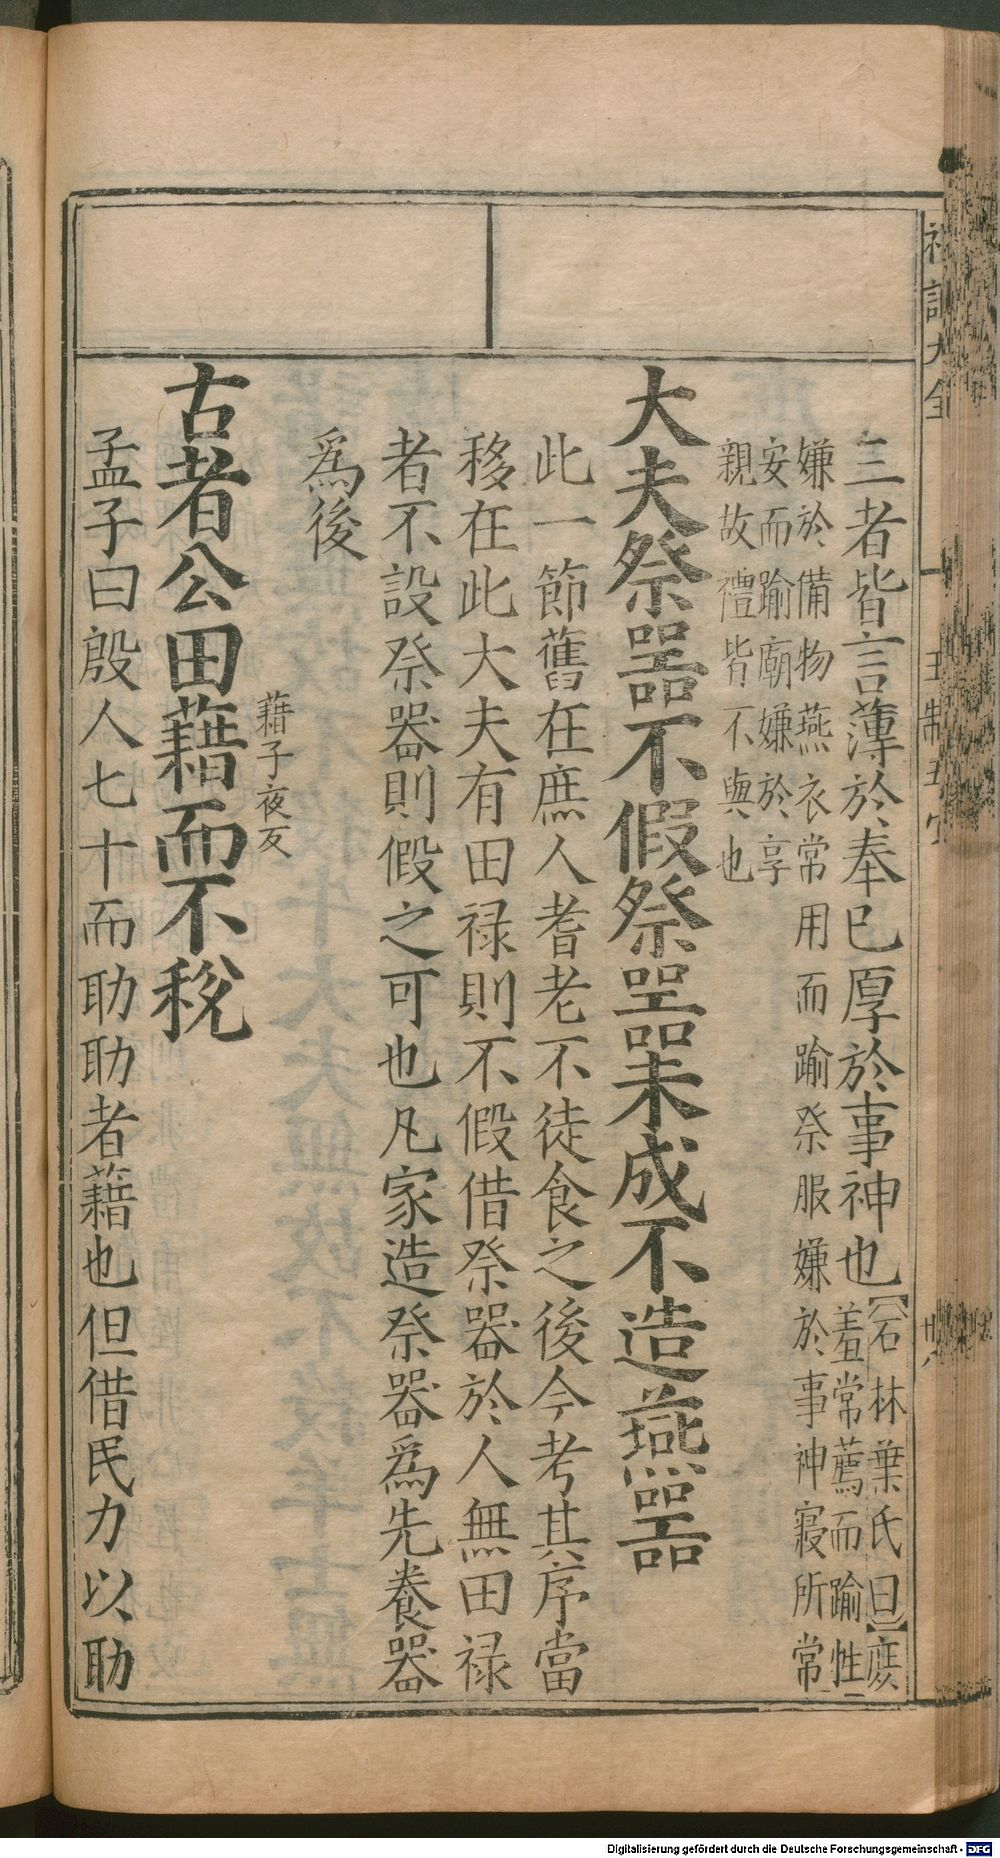 禮記大全
王制五
三者皆言薄於奉已厚於事神也【石林葉氏曰】庶
羞常薦而踰牲
嫌於備物燕衣常用而踰祭服嫌於事神寢所常
安而踰廟嫌於享
親故禮皆不與也
大夫祭器不假祭器未成不造燕器
此一節舊在庶人耆老不徒食之後今考其序當
移在此大夫有田禄則不假借祭器於人無田禄
者不設祭器則假之可也凡家造祭器爲先養器
爲後
藉子夜反
古者公田藉而不稅
孟子曰殷人七十而助助者藉也但借民力以助
Digitalisierung gefördert durch die Deutsche Forschungsgemeinschaft - DFG